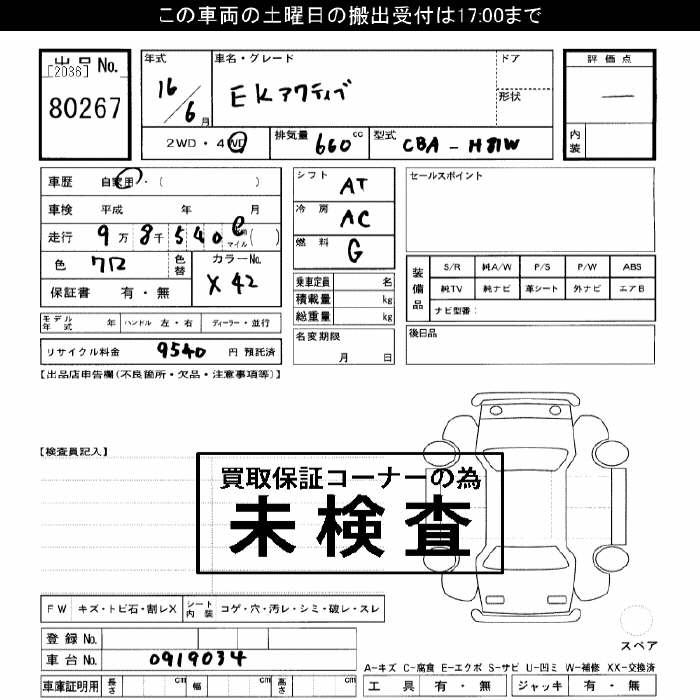 この車両の土曜日の搬出受付は17:00まで
出品 No.
[2036]
80267
年式
16/6月
車名・グレード
EKアクティブ
ドア
形状
評価点
—
内装
2WD・4WD
排気量 660 cc
型式 CBA - H81W
車歴 自家用・( )
車検 平成 年 月
走行 9万8千540 マイル( )
色 クロ
色替
カラーNo.
X42
保証書 有・無
シフト AT
冷房 AC
燃料 G
乗車定員 名
積載量 kg
総重量 kg
セールスポイント
装備品
S/R 純A/W P/S P/W ABS
純TV 純ナビ 革シート 外ナビ エアB
ナビ型番:
モデル年式 年 ハンドル 左・右 ディーラー・並行
リサイクル料金 9540 円 預託済
名変期限
月 日
後日品
【出品店申告欄(不良箇所・欠品・注意事項等)】
【検査員記入】
買取保証コーナーの為
未検査
FW キズ・トビ石・割レX シート内装 コゲ・穴・汚レ・シミ・破レ・スレ
登録 No.
車台 No. 0919034
車庫証明用 長さ cm 幅 cm 高さ cm
スペア
A-キズ C-腐食 E-エクボ S-サビ U-凹ミ W-補修 XX-交換済
工具 有・無 ジャッキ 有・無